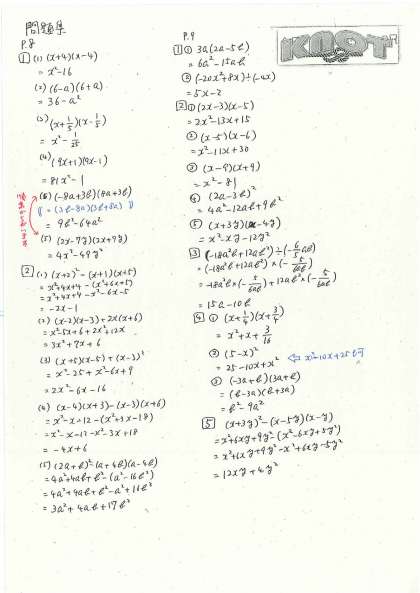 問題集
P.8
1 (1) (x+4)(x-4)
= x²-16
(2) (6-a)(6+a)
= 36-a²
(3) (x+1/5)(x-1/5)
= x²-1/25
(4) (9x+1)(9x-1)
= 81x²-1
(6) (-8a+3b)(8a+3b)
(= (3b-8a)(3b+8a))
= 9b²-64a²
(5) (2x-7y)(2x+7y)
= 4x²-49y²
2 (1) (x+2)²-(x+1)(x+5)
= x²+4x+4-(x²+6x+5)
= x²+4x+4-x²-6x-5
= -2x-1
(2) (x-2)(x-3)+2x(x+6)
= x²-5x+6+2x²+12x
= 3x²+7x+6
(3) (x+5)(x-5)+(x-3)²
= x²-25+x²-6x+9
= 2x²-6x-16
(4) (x-4)(x+3)-(x-3)(x+6)
= x²-x-12-(x²+3x-18)
= x²-x-12-x²-3x+18
= -4x+6
(5) (2a+b)²-(a+4b)(a-4b)
= 4a²+4ab+b²-(a²-16b²)
= 4a²+4ab+b²-a²+16b²
= 3a²+4ab+17b²
P.9
KNOT
1 ① 3a(2a-5b)
= 6a²-15ab
② (-20x²+8x)÷(-4x)
= 5x-2
2 ① (2x-3)(x-5)
= 2x²-13x+15
② (x-5)(x-6)
= x²-11x+30
③ (x-9)(x+9)
= x²-81
④ (2a-3b)²
= 4a²-12ab+9b²
⑤ (x+3y)(x-4y)
= x²-xy-12y²
3 (-18a²b+12ab²)÷(-6/5ab)
= (-18a²b+12ab²)×(-5/6ab)
= -18a²b×(-5/6ab)+12ab²×(-5/6ab)
= 15a-10b
4 ① (x+1/4)(x+3/4)
= x²+x+3/16
② (5-x)²
= 25-10x+x² ⇐ x²-10x+25も可
③ (-3a+b)(3a+b)
= (b-3a)(b+3a)
= b²-9a²
5 (x+3y)²-(x-5y)(x-y)
= x²+6xy+9y²-(x²-6xy+5y²)
= x²+6xy+9y²-x²+6xy-5y²
= 12xy+4y²